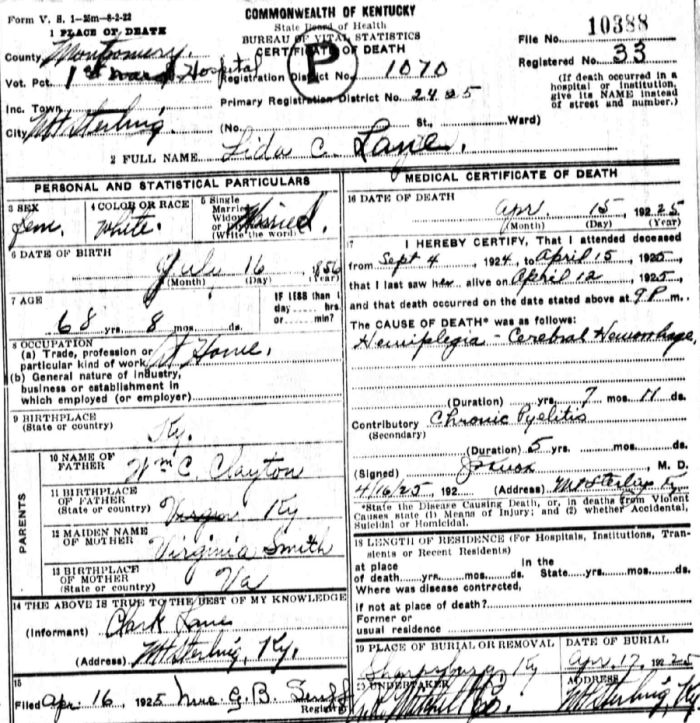 Form V. S. 1-25m-8-2-22
COMMONWEALTH OF KENTUCKY
State Board of Health
BUREAU OF VITAL STATISTICS
CERTIFICATE OF DEATH
P
File No. 10388
Registered No. 33
(If death occurred in a hospital or institution, give its NAME instead of street and number.)
1 PLACE OF DEATH
County Montgomery
Vot. Pct. 1st ward Hospital
Registration District No. 1070
Inc. Town
Primary Registration District No. 2425
City Mt Sterling
(No. St., Ward)
2 FULL NAME Lida C. Lane.
PERSONAL AND STATISTICAL PARTICULARS
3 SEX Fem.
4 COLOR OR RACE White.
5 Single Married Widowed or (Write the word) Married.
6 DATE OF BIRTH
July 16, 1856
(Month) (Day) (Year)
7 AGE
68 yrs. 8 mos. ds.
IF LESS than 1 day hrs. or min?
8 OCCUPATION
(a) Trade, profession or particular kind of work At Home.
(b) General nature of industry, business or establishment in which employed (or employer)
9 BIRTHPLACE
(State or country) Ky.
PARENTS
10 NAME OF FATHER Wm C. Clayton
11 BIRTHPLACE OF FATHER
(State or country) Ky
12 MAIDEN NAME OF MOTHER Virginia Smith
13 BIRTHPLACE OF MOTHER
(State or country) Va
14 THE ABOVE IS TRUE TO THE BEST OF MY KNOWLEDGE
(Informant) Clark Lane
(Address) Mt Sterling, Ky.
15
Filed Apr 16, 1925 Mrs G. B. Registrar
MEDICAL CERTIFICATE OF DEATH
16 DATE OF DEATH
Apr. 15, 1925
(Month) (Day) (Year)
17 I HEREBY CERTIFY, That I attended deceased
from Sept 4, 1924, to April 15, 1925
that I last saw her alive on April 12, 1925,
and that death occurred on the date stated above at 9 P. m.
The CAUSE OF DEATH* was as follows:
Hemiplegia - Cerebral Hemorrhage,
(Duration) yrs. 7 mos. 11 ds.
Contributory Chronic Pyelitis
(Secondary)
(Duration) 5 yrs. mos. ds.
(Signed) M. D.
4/16/25, 192 (Address) Mt Sterling Ky
*State the Disease Causing Death, or, in deaths from Violent
Causes state (1) Means of Injury; and (2) whether Accidental,
Suicidal or Homicidal.
18 LENGTH OF RESIDENCE (For Hospitals, Institutions, Transients or Recent Residents)
at place of death yrs. mos. ds. In the State yrs. mos. ds.
Where was disease contracted,
if not at place of death?
Former or usual residence
19 PLACE OF BURIAL OR REMOVAL
Sharpsburg Ky
DATE OF BURIAL
Apr. 17, 1925
20 UNDERTAKER
ADDRESS
Mt Sterling, Ky